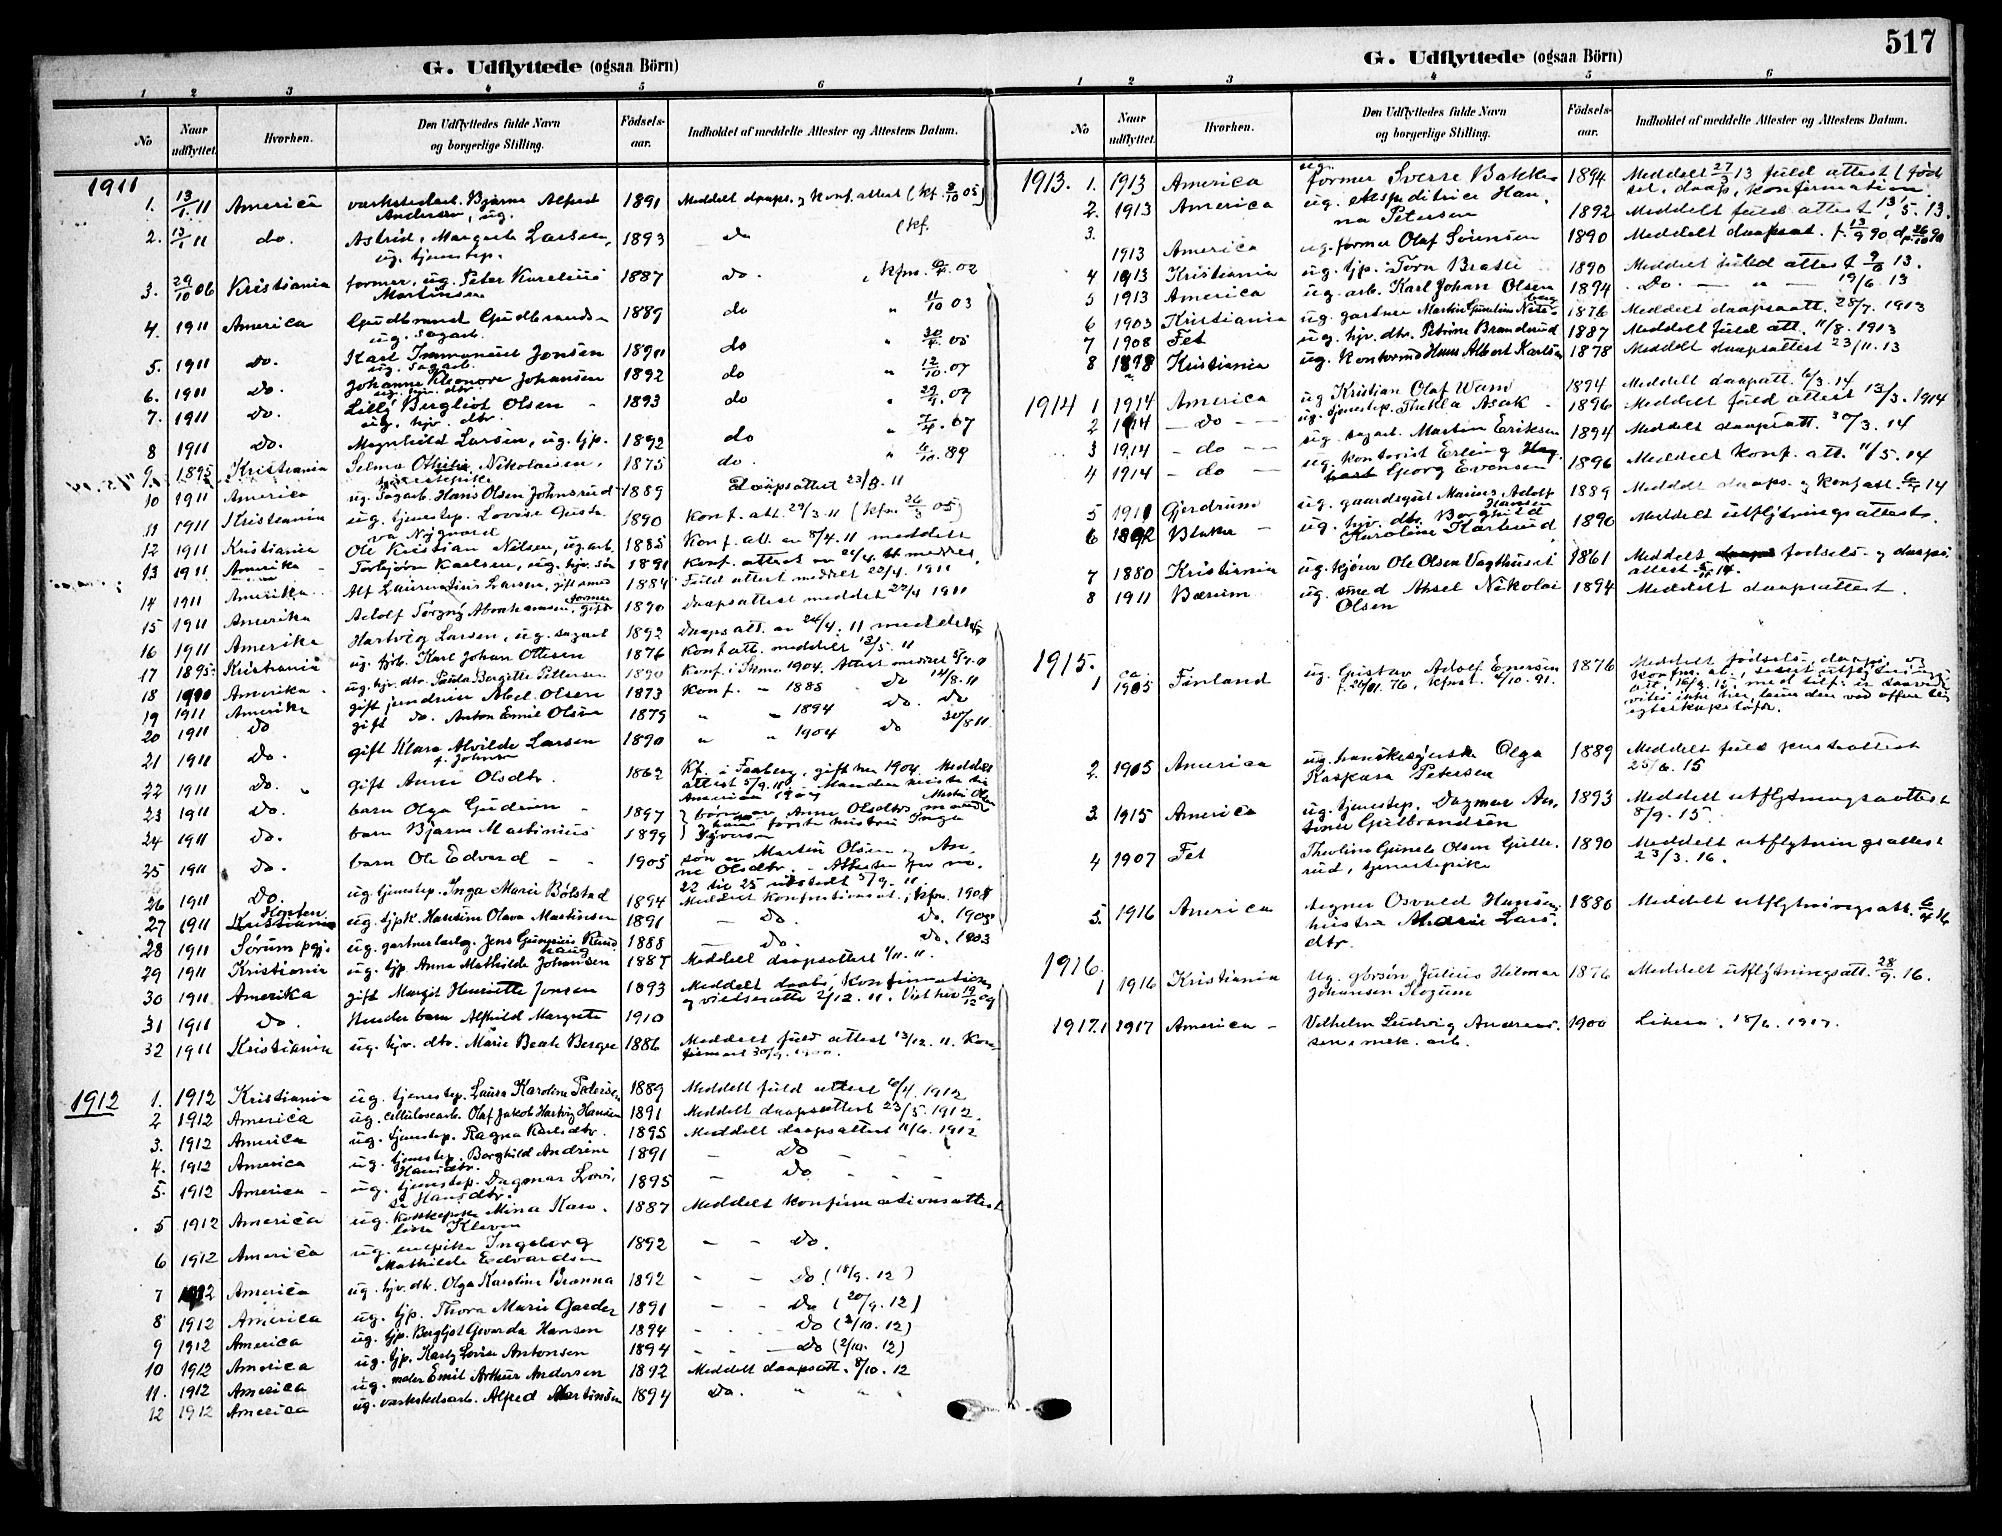 517
G. Udflyttede (ogsaa Börn)
1 2 3 4 5 6
No Naar udflyttet. Hvorhen. Den Udflyttedes fulde Navn og borgerlige Stilling. Födsels-aar. Indholdet af meddelte Attester og Attestens Datum.
1911
1. 13/1 11 America værkstedarb. Bjarne Alfred 1891 Meddelt daaps. og Konf. attest (kf. 05)
Andersen, ug.
2. 13/1 11 do. Astrid Margarete Larsen, 1893 do (kf.
ug. tjenestep.
3. 29/10 06 Kristiania former, ug. Peter Kurelius 1887 do. kfm. 02
Martinsen
4. 1911 America Gudbrand Gudbrandsen 1889 do " 11/10 03
ug. sagarb.
5. 1911 Do. Karl Immanuel Jonsen 1890 do " 30/4 05
ug. sagarb.
6. 1911 Do. Johanne Eleonore Johansen 1892 do " 12/10 07
ug. hjv. dtr.
7. 1911 Do. Lilly Bergliot Olsen - 1893 do "
ug. hjv. dtr.
8 1911 Do. Magnhild Larsen, ug. tjp. 1892 do " 7/4 07
9. 1895 Kristiania Selma Othilie Nikolaisen, 1875 do. " 6/10 89
10 1911 America ug. Sagarb. Hans Olsen Johnsrud 1889 Daapsattest 23/3. 11
11 1911 Kristiania ug. tjenestep. Lovise Gusta- 1890 Konf. att. 29/3. 11 (kfm 26/3 05)
va Nygaard
12 1911 Kristiania Ole Kristian Nilsen, ug. arb. 1885 Konf. att. av 8/4. 11 meddelt
13 1911 Amerika - Torbjörn Karlsen, ug. hjv. sön 1891 Konf. attest av 22/4. 11 meddel.
14 1911 Amerika Alf Laurentius Larsen, gift smed 1884 Fuld attest meddelt 22/4. 1911
15 1911 Amerika Adolf Torgny Abrahamsen, gift former 1890 Daapsattest meddelt 22/4 1911
16 1911 Amerika Hartvig Larsen, ug. sagarb 1892 Daapsatt. av 26/4. 11 meddelt
17 1895. Kristiania ug. fjb. Karl Johan Ottesen 1876 Konf att. meddelt 13/5. 11
18 1900 Amerika - ug. hjv. dtr. Paula Bergitte Pettersen 1890 Konf. i Skmo 1904. Attest meddelt 5/7. 11
19 1911 Amerika gift jerndreier Abel Olsen 1873 Konf. " 1888 Do 14/8. 11
20 1911 Do gift do. Anton Emil Olsen 1879 " " 1894 Do. Do
21 1911 Do. gift Klara Alvilde Larsen 1890 " " 1904 Do 30/8 11.
f. Johnsen
22 1911 Do. " gift Anne Olsdtr. 1862 Kf. i Faaberg, gift her 1904. Meddelt
attest 5/9. 11. Manden reiste til
America 1909
23 1911 Do. barn Olga Gudrun - 1897 } börn av Anne Olsdtrs mand Martin Olsen
24 1911 Do. barn Bjarne Martinius 1899 } og hans förste hustru Inga
Syversen
25 1911 Do. barn Ole Edvard - - 1905 sön av Martin Olsen og An-
ne Olsdtr. - Attester for no.
22 til 25 utstedt 5/9. 11
26 1911 Do. ug. tjenestep. Inga Marie Bölstad 1894 Meddelt Konfirmationsat., kfm. 1908
27 1911 Horten Kristiania ug. tjpk. Hansine Olava Martinsen 1891 - Do. Do. 1905
28 1911 Sørum pgj. ug. gartnerlærling Jens Gunerius Rund 1888 - Do. Do. 1903
haug
29 1911 Kristiania ug. tjp. Anna Mathilde Johansen 1887 Meddelt daapsattest 1/11. 11.
30 1911 Amerika gift Margit Henriette Jonsen 1893 Meddelt daabs, Konfirmations
og vielsesatte 2/12. 11. Viet her 19/12 09
31 1911 Do. Hendes barn Alfhild Margrete 1910
32 1911 Kristiania ug. hjv. dtr. Marie Beate Berger 1886 Meddelt fuld attest 13/12. 11. Kon-
firmert 30/9. 1900.
1912 1. 1912 Kristiania ug. tjenestep. Laura Karoline Pedersen 1889 Meddelt fuld attest 10/4. 1912
2 1912 America ug. cellulosearb. Olaf Jakob Hartvig Hansen 1891 Meddelt daapsattest 23/5. 1912.
3. 1912 America ug. tjenestep. Ragna Karlsdtr. 1895 Meddelt daapsattest 11/6. 1912
4. 1912 America ug. tjenestep. Borghild Andrine 1891 - Do - -
Hansdtr.
5. 1912 America - ug. tjenestep. Dagmar Lovi- 1895 - Do. - -
se Hansdtr.
5 1912 America ug. Kokkepike Mina Karo- 1887 Meddelt Konfirmationsattest
line Kleven
6 1912 America ug. Ingeborg 1892 - - Do.
Mathilde Edvardsen
7 1912 America ug. hjv. dtr. Olga Karoline Brænna 1892 - - Do. (18/9. 12)
8 1912 America ug. tjp. Thora Marie Garder 1891 - - Do (20/9. 12)
9 1912 America ug. tjp. Bergljot Gvarda Hansen 1894 - - Do (2/10. 12)
10 1912 America ug. tjp. Karly Lovise Antonsen 1894 - - Do (2/10. 12)
11. 1912 America ug. maler Emil Arthur Andersen 1892 Meddelt daapsatt. 8/10. 12
12 1912 America ug. værkstedsarb. Alfred Martinsen 1894 Do. " " "
G. Udflyttede (ogsaa Börn)
1 2 3 4 5 6
No Naar udflyttet. Hvorhen. Den Udflyttedes fulde Navn og borgerlige Stilling. Födsels-aar. Indholdet af meddelte Attester og Attestens Datum.
1913. 1. 1913 America ug. former Sverre Bakke 1894 Meddelt 27/3 13 fuld attest (föd-
sel, daap, konfirmation.
2. 1913 America ug. ekspeditrice Han- 1892 Meddelt fuld attest 13/5. 13.
na Petersen
3. 1913 America ug. former Olaf Sörensen 1890 Meddelt daapsat. f. 13/9 90 dp. 26/10 90
4 1913 Kristiania ug. tjp. Tora Braste 1890 Meddelt fuld attest 13.
5 1913 America ug. arb. Karl Johan Olsen 1894 - Do. - " - 19/6. 13
6 1903 Kristiania ug. gartner Martin Gunelius Nese- 1876 Meddelt daapsatt. 28/7. 1913
berg
7 1908 Fet ug. hjv. dtr. Petrine Branderud 1887 Meddelt fuld att. 11/8. 1913
8 1898 Kristiania ug. Kontorist Hans Albert Karlsen 1878 Meddelt daapsattest 23/11. 13
1914 1 1914 America ug Kristian Olaf Wam 1894 Meddelt daapsatt. 6/3. 14
2 1914 - do - - ug. tjenestep. Thekla Asak - 1896 Meddelt fuld attest 13/3. 1914
3 1914 - do - - ug. sagarb. Martin Eriksen 1894 Meddelt daapsatt. 30/3. 14
4 1914 - do - ug. Kontorist Erling Hag- 1896 Meddelt Konf. att. 11/5. 14
bart Georg Evensen
5 1911 Gjerdrum ug. gaardsgut Marius Adolf 1889 Meddelt daaps. og Konfatt. 14
Hansen
6 1892 Blaker - ug. hjv. dtr. Borghild 1890 Meddelt utflytningsattest.
Karoline Karlsrud
7 1880 Kristiania ug. kjörer Ole Olsen Vagthuset 1861 Meddelt födsels- og daaps
attest 14.
8 1911 Bærum ug. smed Aksel Nikolai 1894 Meddelt daapsattest.
Olsen
1915. 1 ca. 1905 Finland ug. Gustav Adolf Enersen 1876 Meddelt födsels-, daaps, og
f. 76, kfm. 4/10. 91.
Konfm. at., samt utflytnings
att. 16/9. 15, med tilf. at saavidt
vites ikke her, laaner den ved offentlig
egteskapslöfte.
2. 1905 America ug. hanskesyerske Olga 1889 Meddelt fuld
Kaspara Petersen 25/6. 15
3. 1915 America ug. tjenestep. Dagmar An- 1893 Meddelt utflytningsattest
tonie Gulbrandsen 8/9. 15
4 1907 Fet Theoline Gunela Olsen Gulle- 1890 Meddelt utflytningsattest
rud, tjenestepike 23/3. 16.
5. 1916 America Agnes Osvald Hansens 1880 Meddelt utflytningsatt. 6/4 16
hustru Marie Lars-
dtr.
1916. 1 1916 Kristiania Ug. grdsön Julius Hilmar 1876 Meddelt utflytningsatt. 28/9. 16.
Johansen Skozum
1917. 1 1917 America - Vilhelm Ludvig Andreas- 1900 18/6. 1917.
sen, mek. arb.